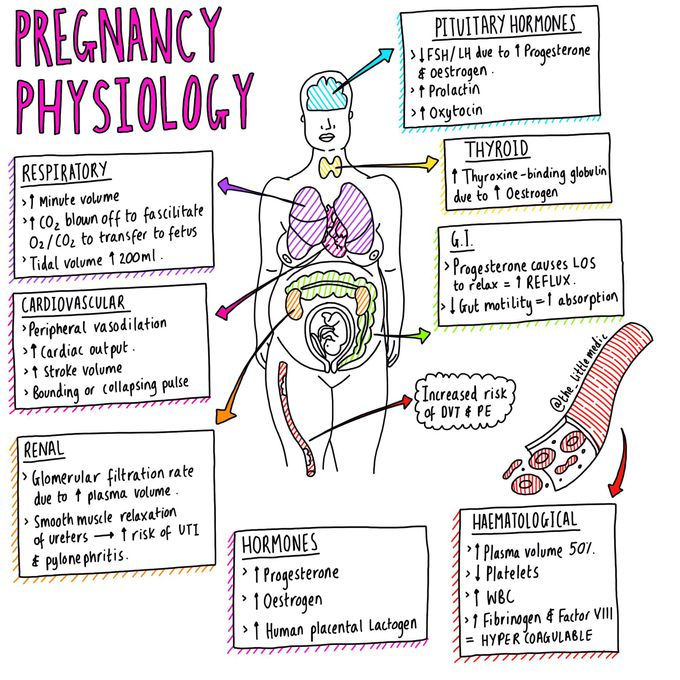 PREGNANCY
PHYSIOLOGY
PITUITARY HORMONES
> ↓ FSH/LH due to ↑ Progesterone
& oestrogen.
> ↑ Prolactin
> ↑ Oxytocin
THYROID
↑ Thyroxine-binding globulin
due to ↑ Oestrogen
RESPIRATORY
> ↑ Minute volume
> ↑ CO2 blown off to fascilitate
O2/CO2 to transfer to fetus
> Tidal volume ↑ 200ml.
G.I.
> Progesterone causes LOS
to relax = ↑ REFLUX.
> ↓ Gut motility = ↑ absorption
CARDIOVASCULAR
> Peripheral vasodilation
> ↑ Cardiac output.
> ↑ Stroke volume
> Bounding or collapsing pulse
@the_littlemedic
Increased risk
of DVT & PE
RENAL
> Glomerular filtration rate
due to ↑ plasma volume.
> Smooth muscle relaxation
of ureters → ↑ risk of UTI
& pylonephritis.
HORMONES
> ↑ Progesterone
> ↑ Oestrogen
> ↑ Human placental Lactogen
HAEMATOLOGICAL
> ↑ Plasma volume 50%.
> ↓ Platelets
> ↑ WBC
> ↑ Fibrinogen & Factor VIII
= HYPERCOAGULABLE